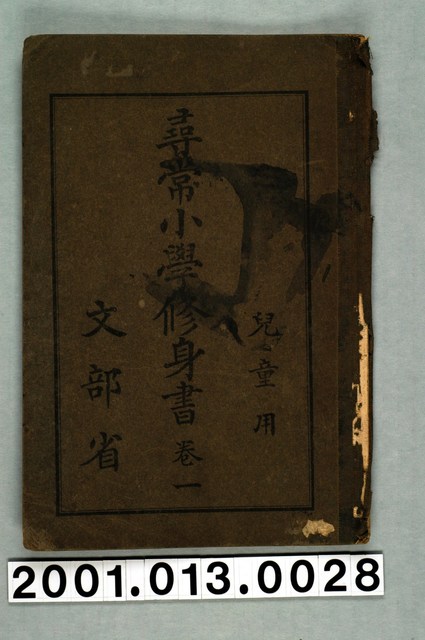 兒童用
尋常小學修身書 卷一
文部省
2001.013.0028